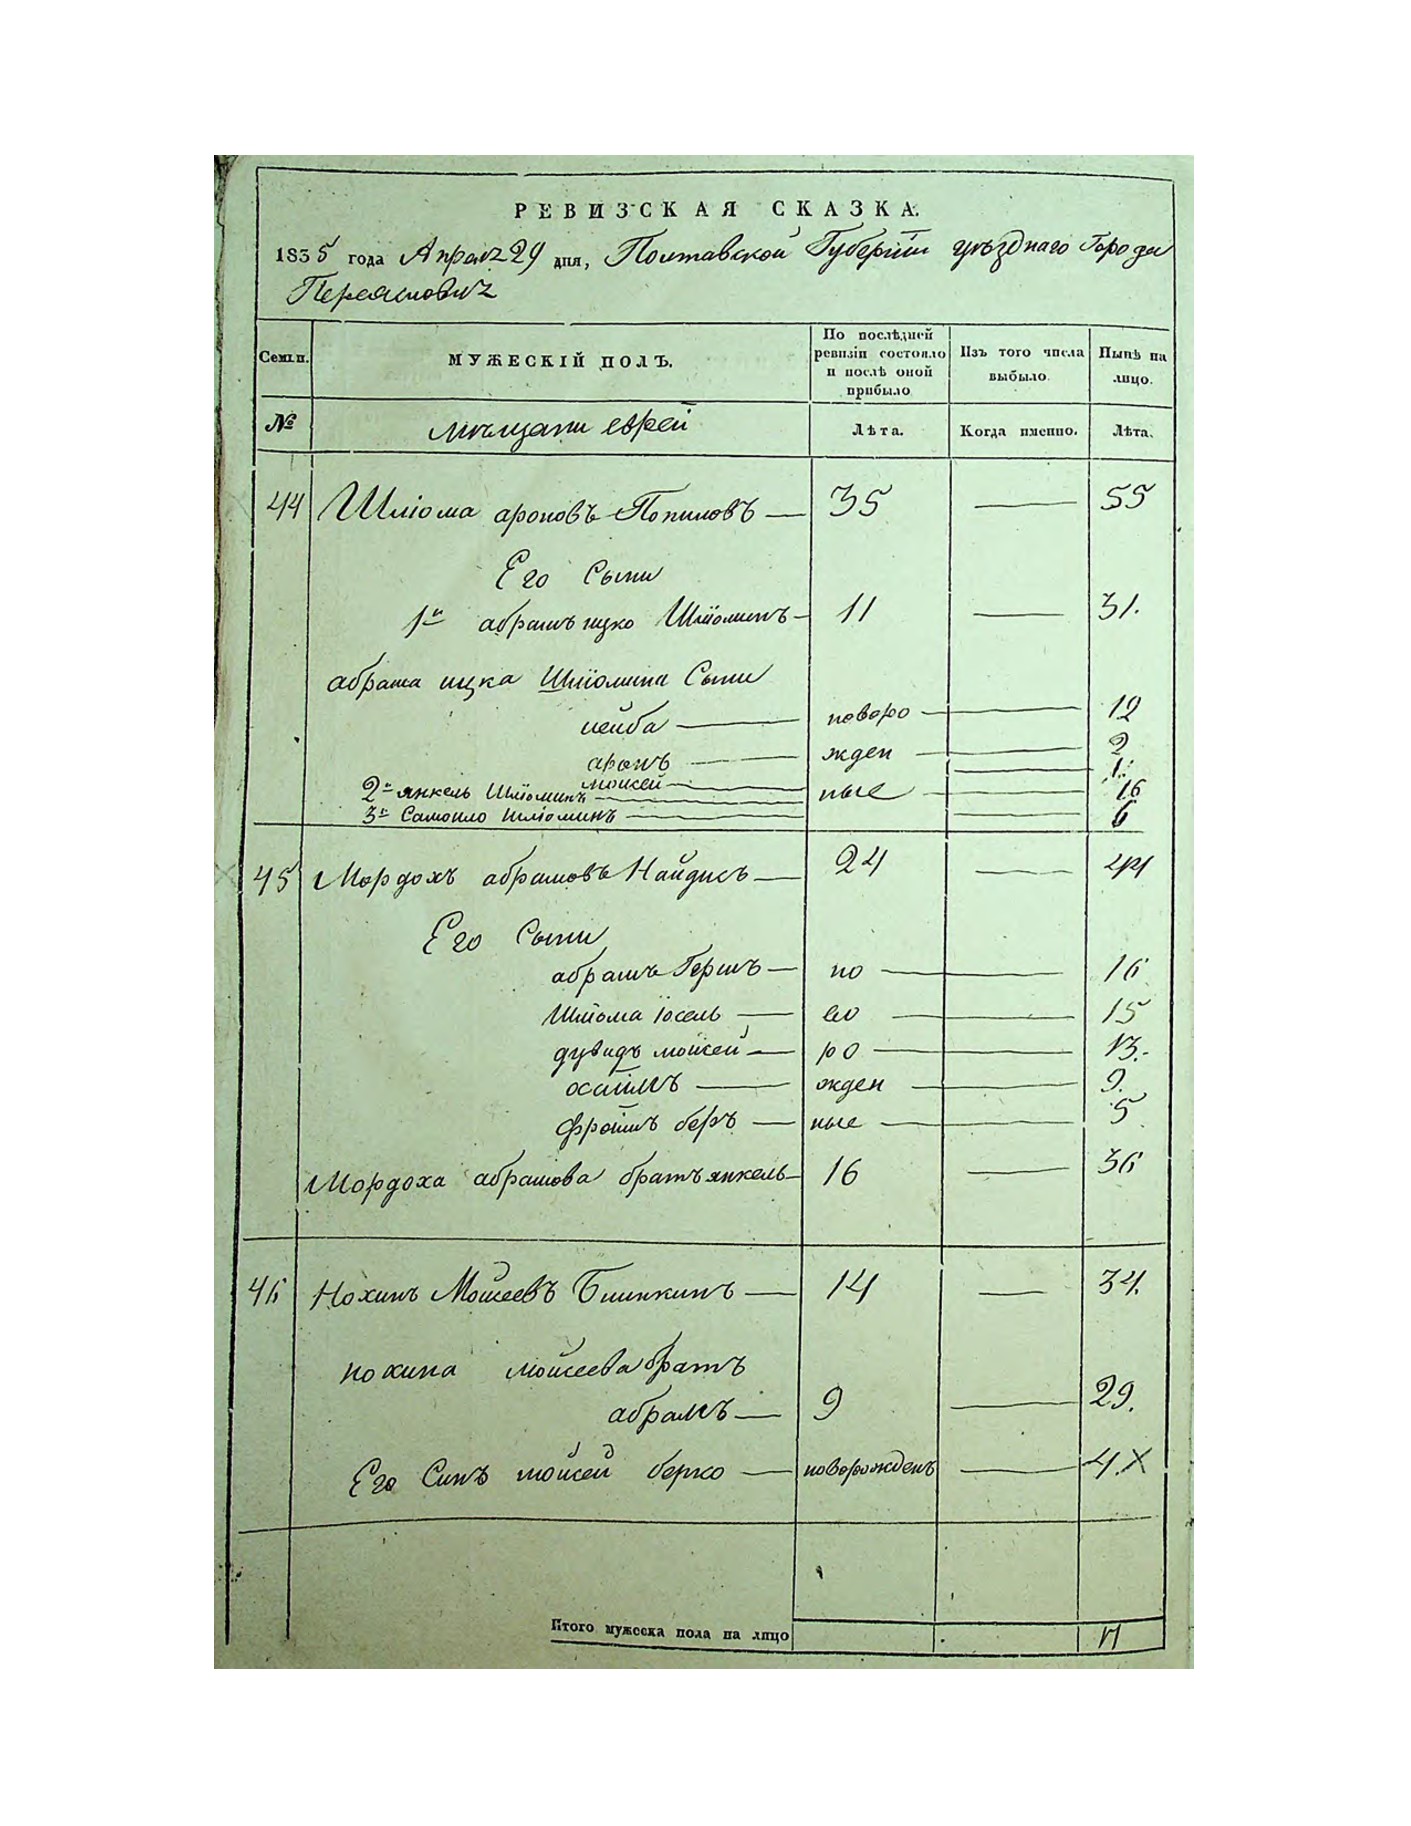 РЕВИЗСКАЯ СКАЗКА.
1835 года Апреля 29 дня, Полтавской Губернїи уѣзднаго Города
Переяславля
Семьи. МУЖЕСКІЙ ПОЛЪ. По послѣдней ревизіи состояло и послѣ оной прибыло Изъ того числа выбыло. Нынѣ на лицо.
№ мѣщани еврей Лѣта. Когда именно. Лѣта.
44 Шліома ароновъ 35 — 55
Его Сыни
1й абрамъ ицко Шліоминъ — 11 — 31.
абрама ицка Шліомина Сыни
лейба — новоро — 12
аронъ — жден — 2
моисей — 1.
2й янкель Шліоминъ — ные — 16
3й Самойло Шліоминъ — 6
45 Мордохъ абрамовъ Найдисъ — 24 — 44
Его Сыни
абрамъ Гершъ — но — 16
Шліома іосель — во — 15
дувидъ мойсей — ро — 13.
— жден — 9.
фроимъ беръ — ные — 5
Мордоха абрамова братъ янкель — 16 — 36
46 Нохимъ Мойсеевъ — 14 — 34.
нохима мойсеева братъ
абрамъ — 9 — 29.
Его Синъ мойсей берко — новорожденъ — 4. X
Итого мужеска пола на лицо